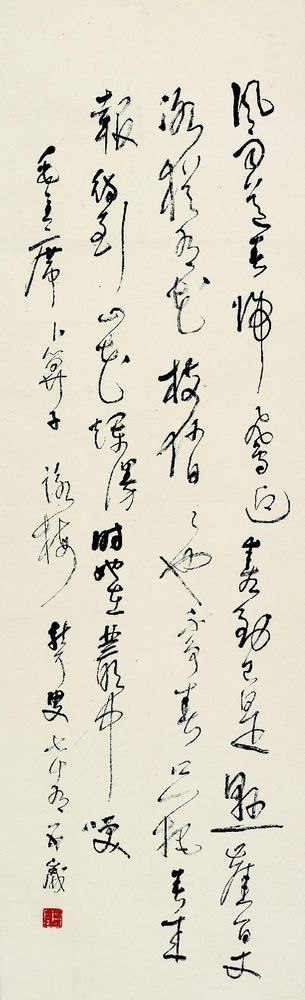 風雨送春歸飛雪迎春到已是懸崖百丈
冰猶有花枝俏〻也不爭春只把春來
報待到山花爛漫時她在叢中笑
毛主席卜算子詠梅 叟七十有歲